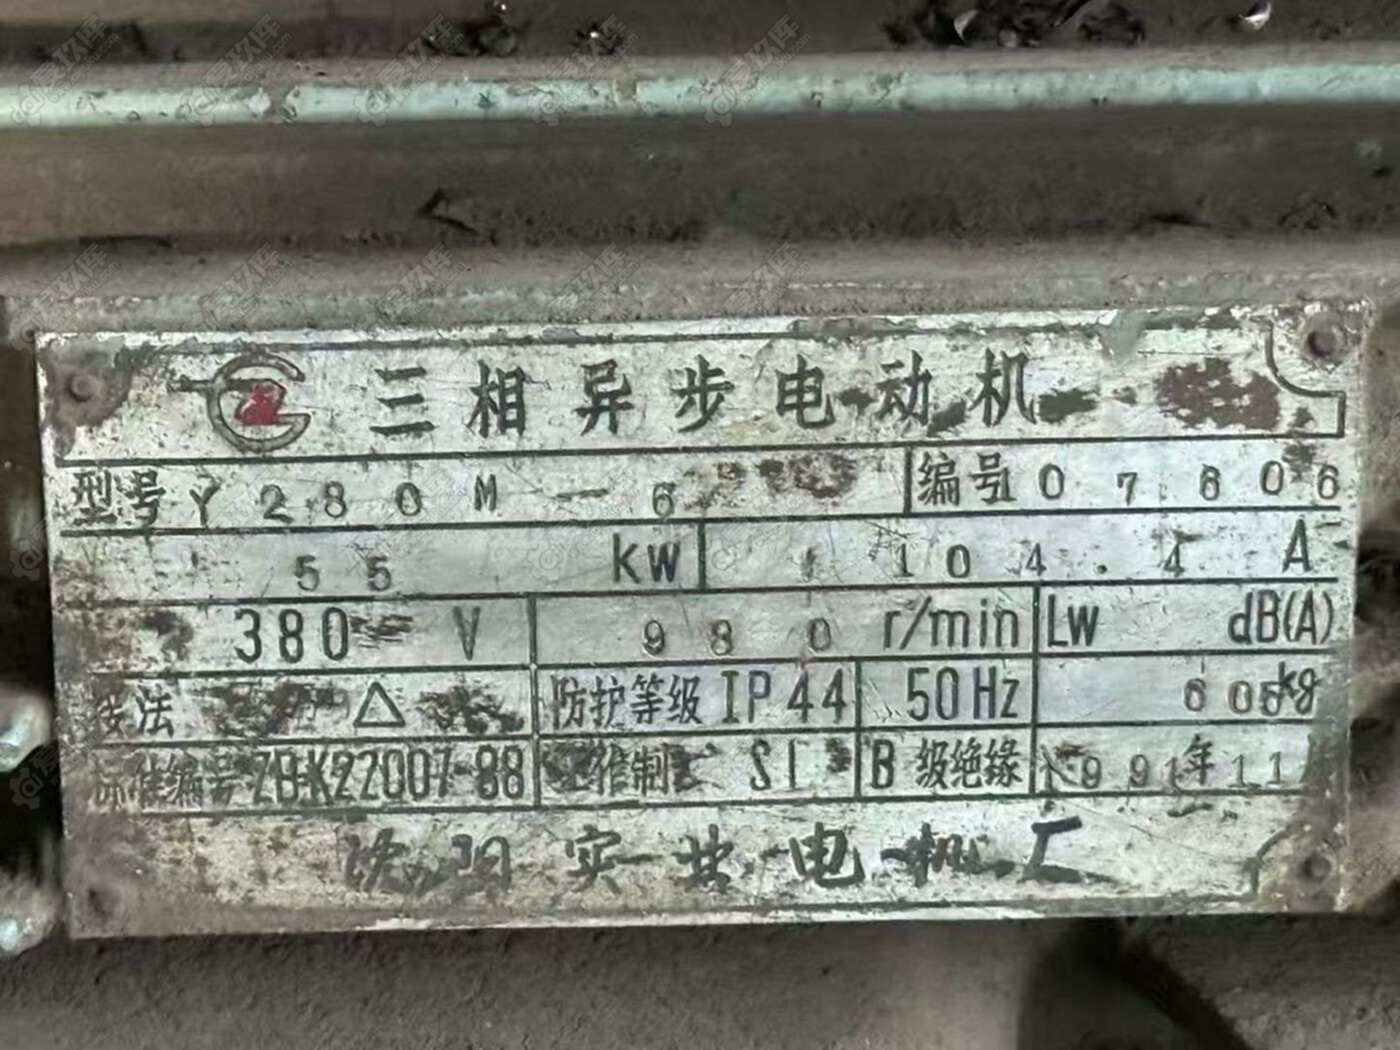 三相异步电动机
型号 Y280M-6 编号 07606
55 kW 104.4 A
380 V 980 r/min Lw dB(A)
接法 △ 防护等级 IP44 50Hz 605kg
标准编号 ZBK22007-88 工作制 S1 B级绝缘 1991年11
沈阳实业电机厂